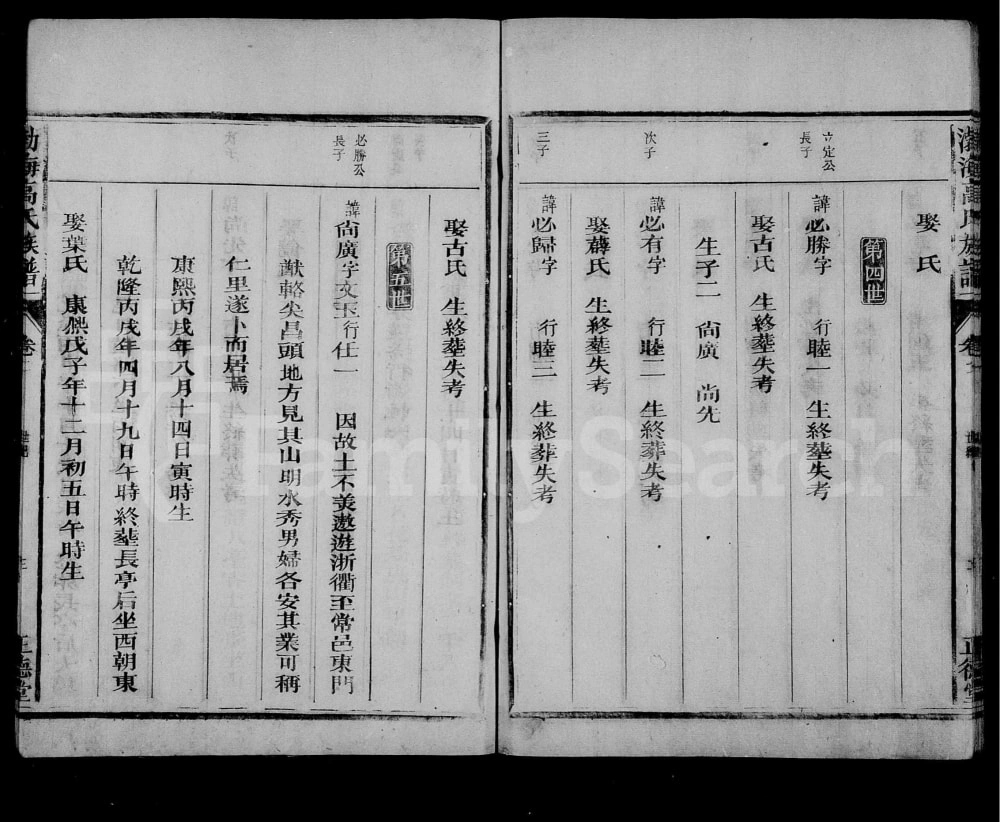 渤海高氏族譜
卷一
正德堂
娶 氏
第四世
立定公
長子
諱必勝字 行睦一 生終塟失考
娶古氏 生終塟失考
生子二 尙廣 尙先
次子
諱必有字 行睦二 生終葬失考
娶薛氏 生終塟失考
三子
諱必歸字 行睦三 生終葬失考
娶古氏 生終塟失考
第五世
必勝公
長子
諱尙廣字文玉行仕一 因故土不美遨遊浙衢至常邑東門
猷輅尖昌頭地方見其山明水秀男婦各安其業可稱
仁里遂卜而居焉
康熙丙戌年八月十四日寅時生
乾隆丙戌年四月十九日午時終塟長亭后坐西朝東
娶葉氏 康熙戊子年十二月初五日午時生
渤海高氏族譜
卷一
正德堂
FamilySearch